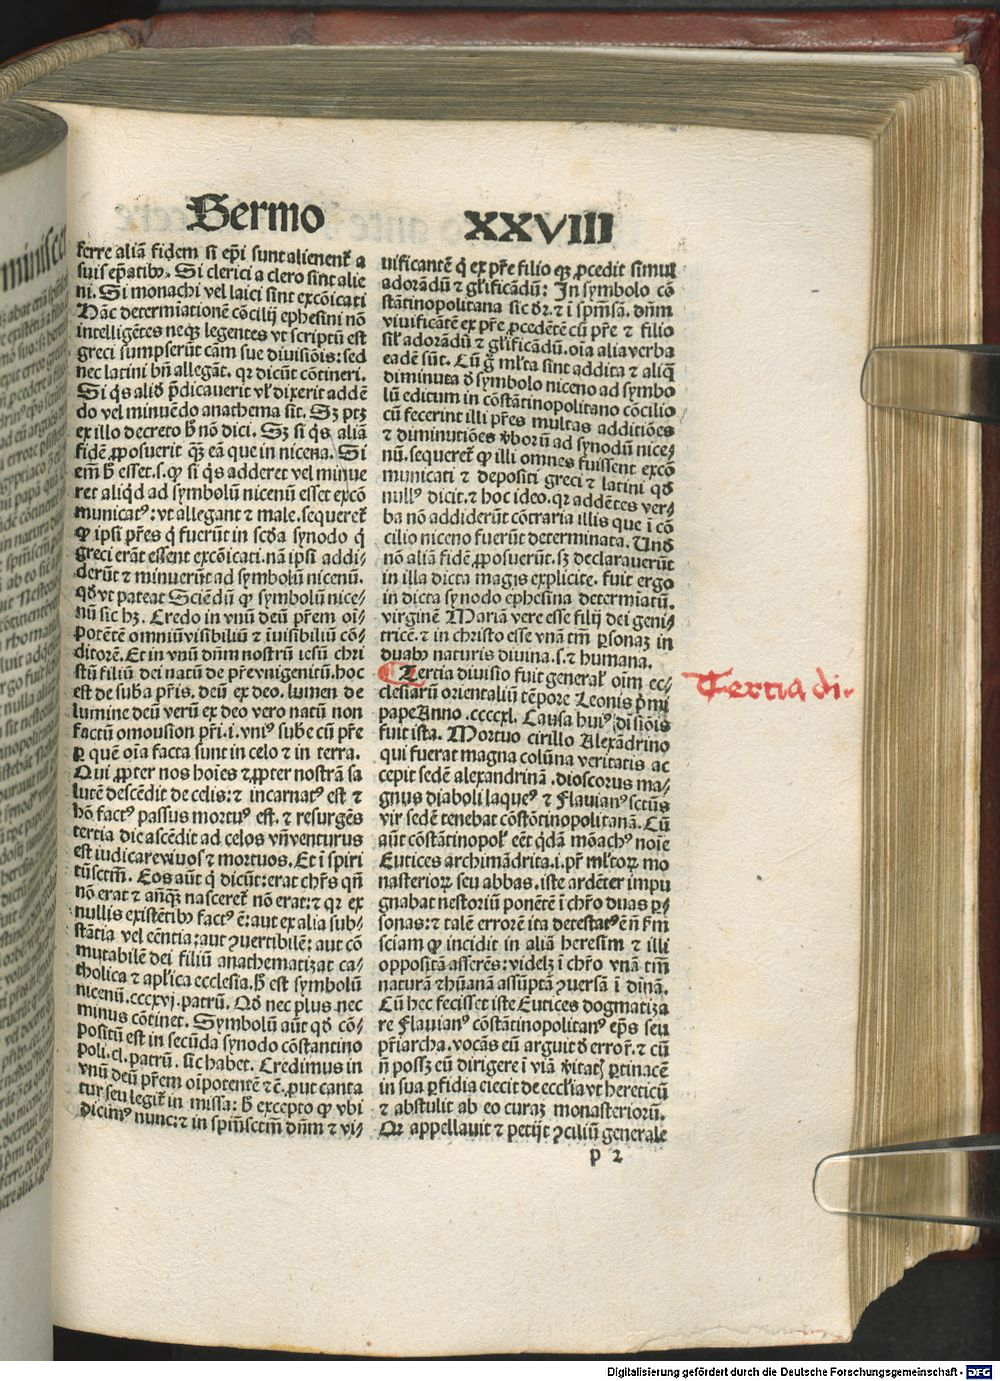 Sermo XXVIII
ferre aliā fidem si ep̄i sunt alienent᷑ a
suis ep̄atibꝫ. Si clerici a clero sint alie
ni. Si monachi vel laici sint excōicati
Hāc determiationē cōcilij ephesini nō
intelligētes neqꝫ legentes vt scriptū est
greci sumpserūt cām sue diuisiōis: sed
nec latini bn̄ allegāt. qꝛ dicūt cōtineri.
Si q̇s aliđ p̄dicauerit vƚ dixerit addē
do vel minuēdo anathema sit. Sꝫ ptꝫ
ex illo decreto ħ nō dici. Sꝫ si q̇s aliā
fidē ꝓposuerit qꝫ eā que in nicena. Si
em̄ ħ esset .s. ꝙ si q̇s adderet vel minue
ret aliq̇d ad symbolū nicenū esset excō
municatꝰ: vt allegant ⁊ male. sequeret᷑
ꝙ ipsi pr̄es q̇ fuerūt in scđa synodo q̇
greci erāt essent excōicati. nā ipsi addi⸗
derūt ⁊ minuerūt ad symbolū nicenū.
qđ vt pateat Sciēdū ꝙ symbolū nice⸗
nū sic hꝫ. Credo in vnū deū pr̄em oī⸗
potētē omniū visibiliū ⁊ īuisibiliū cō⸗
ditorē. Et in vnū dn̄m nostrū iesū chri
stū filiū dei natū de pr̄e vnigenitū. hoc
est de suba pr̄is. deū ex deo. lumen de
lumine deū verū ex deo vero natū non
factū omousion pr̄i .i. vniꝰ sube cū pr̄e
ꝑ quē oīa facta sunt in celo ⁊ in terra.
Qui ꝓpter nos hoīes ⁊ ꝓpter nostrā sa
lutē descēdit de celis: ⁊ incarnatꝰ est ⁊
hō factꝰ passus mortuꝰ est. ⁊ resurgēs
tertia die ascēdit ad celos vn̄ venturus
est iudicare viuos ⁊ mortuos. Et ī spiri
tū sctm̄. Eos aūt q̇ dicūt: erat chr̄s qn̄
nō erat ⁊ an̄qꝫ nasceret᷑ nō erat: ⁊ qꝛ ex
nullis existētibꝫ factꝰ ē: aut ex alia sub⸗
stātia vel eēntia: aut ꝯuertibilē: aut cō
mutabilē dei filiū anathematizat ca⸗
tholica ⁊ apƚica ecclesia. ħ est symbolū
nicenū .cccxvj. patrū. Qđ nec plus nec
minus cōtinet. Symbolū aūt qđ cō⸗
positū est in secūda synodo cōstantino
poli .cl. patrū. sic habet. Credimus in
vnū deū pr̄em oīpotentē ⁊ē. ꝓut canta
tur seu legit᷑ in missa: ħ excepto ꝙ vbi
dicimꝰ nunc: ⁊ in spm̄ sctm̄ dn̄m ⁊ vi⸗
uificantē q̇ ex pr̄e filio qꝫ ꝓcedit simul
adorādū ⁊ gƚificādū: In symbolo cō
stātinopolitana sic dꝛ. ⁊ ī spm̄ sā. dn̄m
viuificātē ex pr̄e ꝓcedētē cū pr̄e ⁊ filio
siƚ adorādū ⁊ gƚificādū. oīa alia verba
eadē sūt. Cū g̊ mƚta sint addita ⁊ aliq̄
diminuta đ symbolo niceno ad symbo
lū editum in cōstātinopolitano cōcilio
cū fecerint illi pr̄es multas additiōes
⁊ diminutiōes đboꝝ ad synodū nice⸗
nū. sequeret᷑ ꝙ illi omnes fuissent excō
municati ⁊ depositi greci ⁊ latini qđ
nullꝰ dicit. ⁊ hoc ideo. qꝛ addētes ver⸗
ba nō addiderūt cōtraria illis que ī cō
cilio niceno fuerūt determinata. Unđ
nō aliā fidē ꝓposuerūt. sꝫ declarauerūt
in illa dicta magis explicite. fuit ergo
in dicta synodo ephesina determiatū.
virginē Mariā vere esse filij dei geni⸗
tricē. ⁊ in christo esse vnā tm̄ ꝑsonaꝫ in
duabꝫ naturis diuina .s. ⁊ humana.
Tertia diuisio fuit generaƚ oīm ec⸗
clesiarū orientaliū tēpore Leonis p̄mi
pape Anno .ccccxl. Causa huiꝰ diuisiōis
fuit ista. Mortuo cirillo Alexādrino
qui fuerat magna colūna veritatis ac
cepit sedē alexandrinā. dioscorus ma⸗
gnus diaboli laqueꝰ ⁊ Flauianꝰ sctūs
vir sedē tenebat cōstātinopolitanā. Cū
aūt cōstātinopoƚ eēt q̇dā mōachꝰ noīe
Eutices archimādrita .i. pr̄ mƚtoꝝ mo
nasterioꝝ seu abbas. iste ardēter impu
gnabat nestoriū ponētē ī chr̄o duas ꝑ⸗
sonas: ⁊ talē errorē ita detestatꝰ ē ꝙ fm̄
sciam ꝙ incidit in aliā heresim ⁊ illi
oppositā asserēs: videlꝫ ī chr̄o vnā tm̄
naturā ⁊ hūanā assūptā ꝯuersā ī diuīā.
Cū hec fecisset iste Eutices dogmatiza
re Flauianꝰ cōstātinopolitanꝰ ep̄s seu
pr̄iarcha. vocās eū arguit đ error̄. ⁊ cū
n̄ possꝫ eū dirigere ī viā v̄itatꝭ ꝑtinacē
in sua ꝑfidia eiecit de eccƚia vt hereticū
⁊ abstulit ab eo curaꝫ monasteriorū.
Qꝛ appellauit ⁊ petijt ꝯciliū generale
p 2
Tertia di.
Digitalisierung gefördert durch die Deutsche Forschungsgemeinschaft - DFG